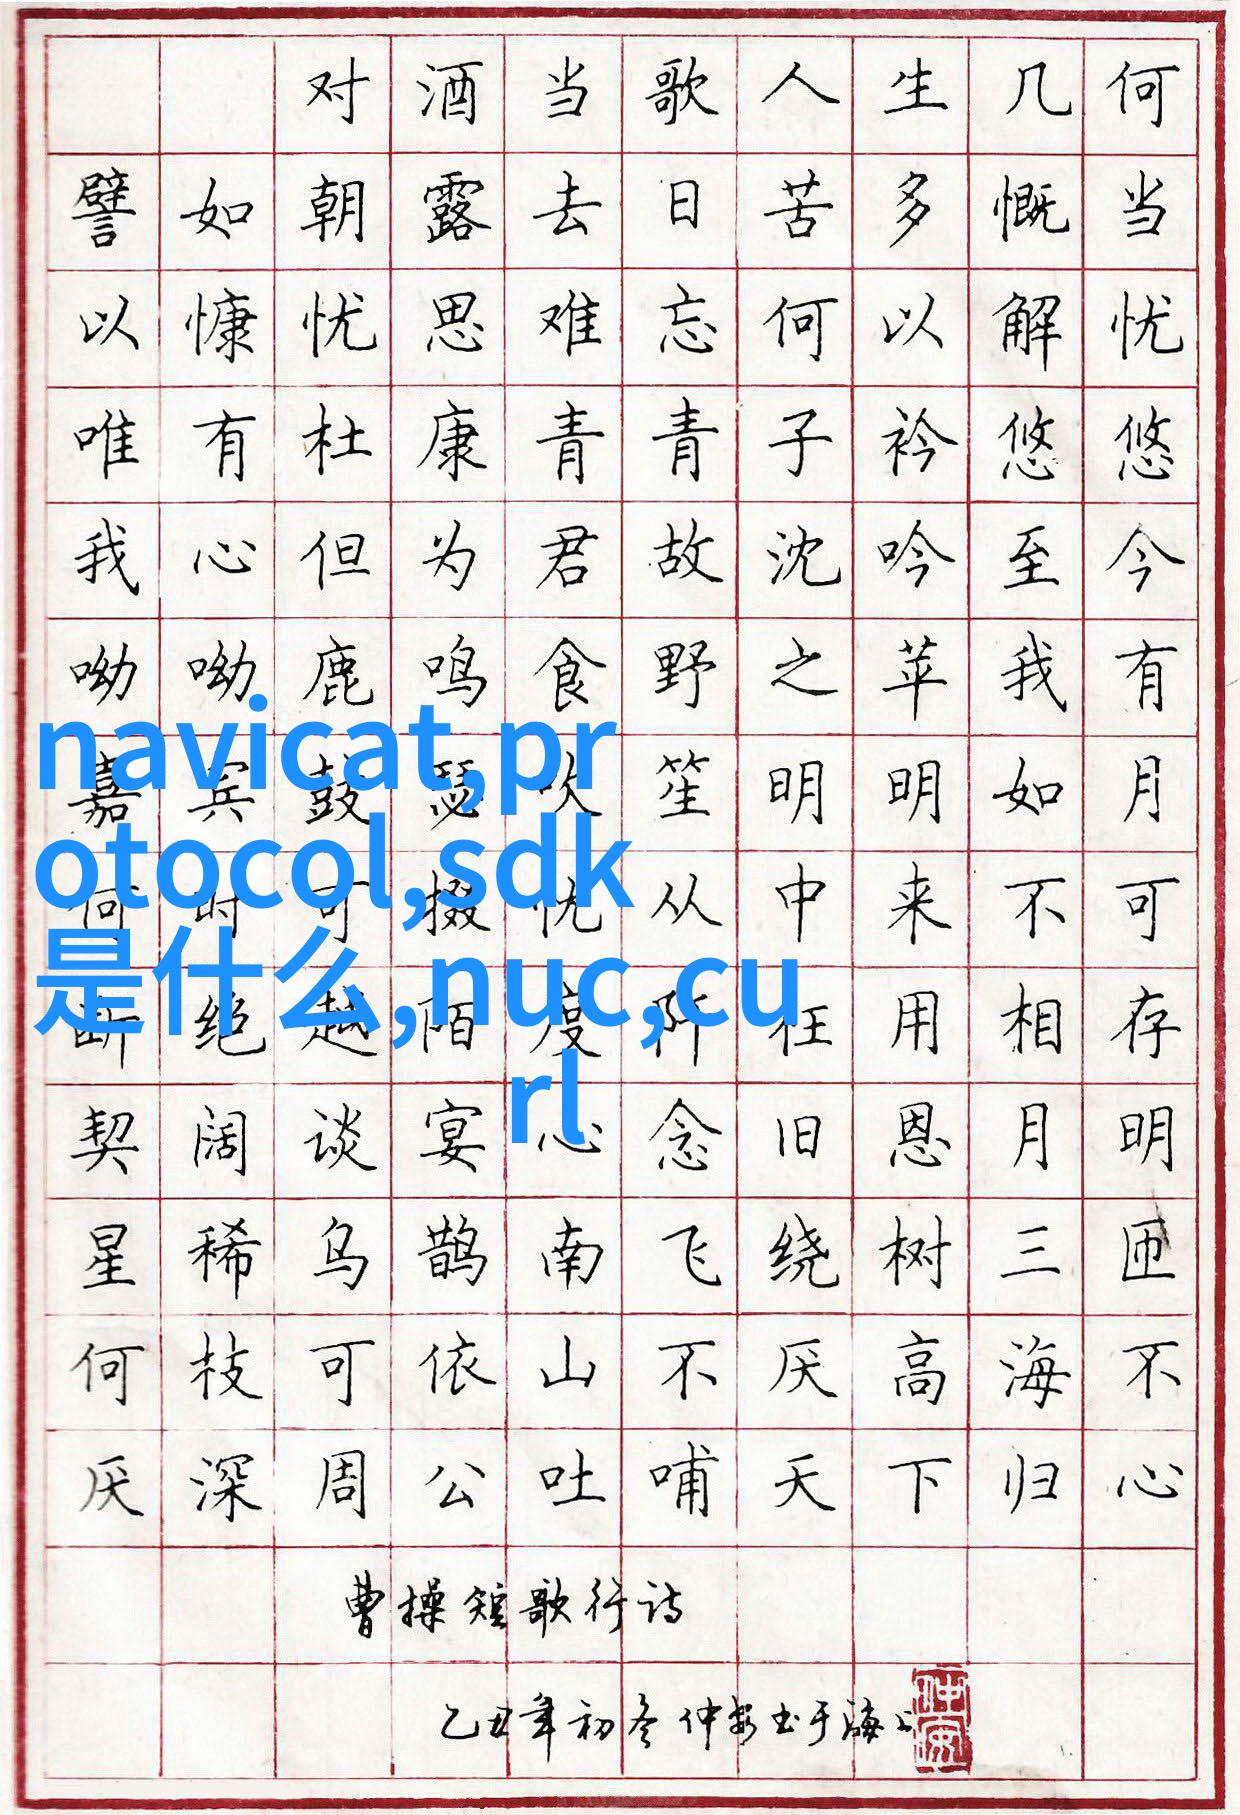 对酒当歌人生几何
譬如朝露去日苦多慨当
以慷忧思难忘何以解忧
唯有杜康青青子衿悠悠
我心但为君故沈吟至今
呦呦鹿鸣食野之苹我有
嘉宾鼓瑟吹笙明明如月
何时可掇忧从中来不可
断绝越陌度阡枉用相存
契阔谈宴心念旧恩月明
星稀乌鹊南飞绕树三匝
何枝可依山不厌高海不
厌深周公吐哺天下归心
曹操短歌行诗
乙丑年初冬仲安书于海上
仲安
navicat,pr
otocol,sdk
是什么,nuc,cu
rl